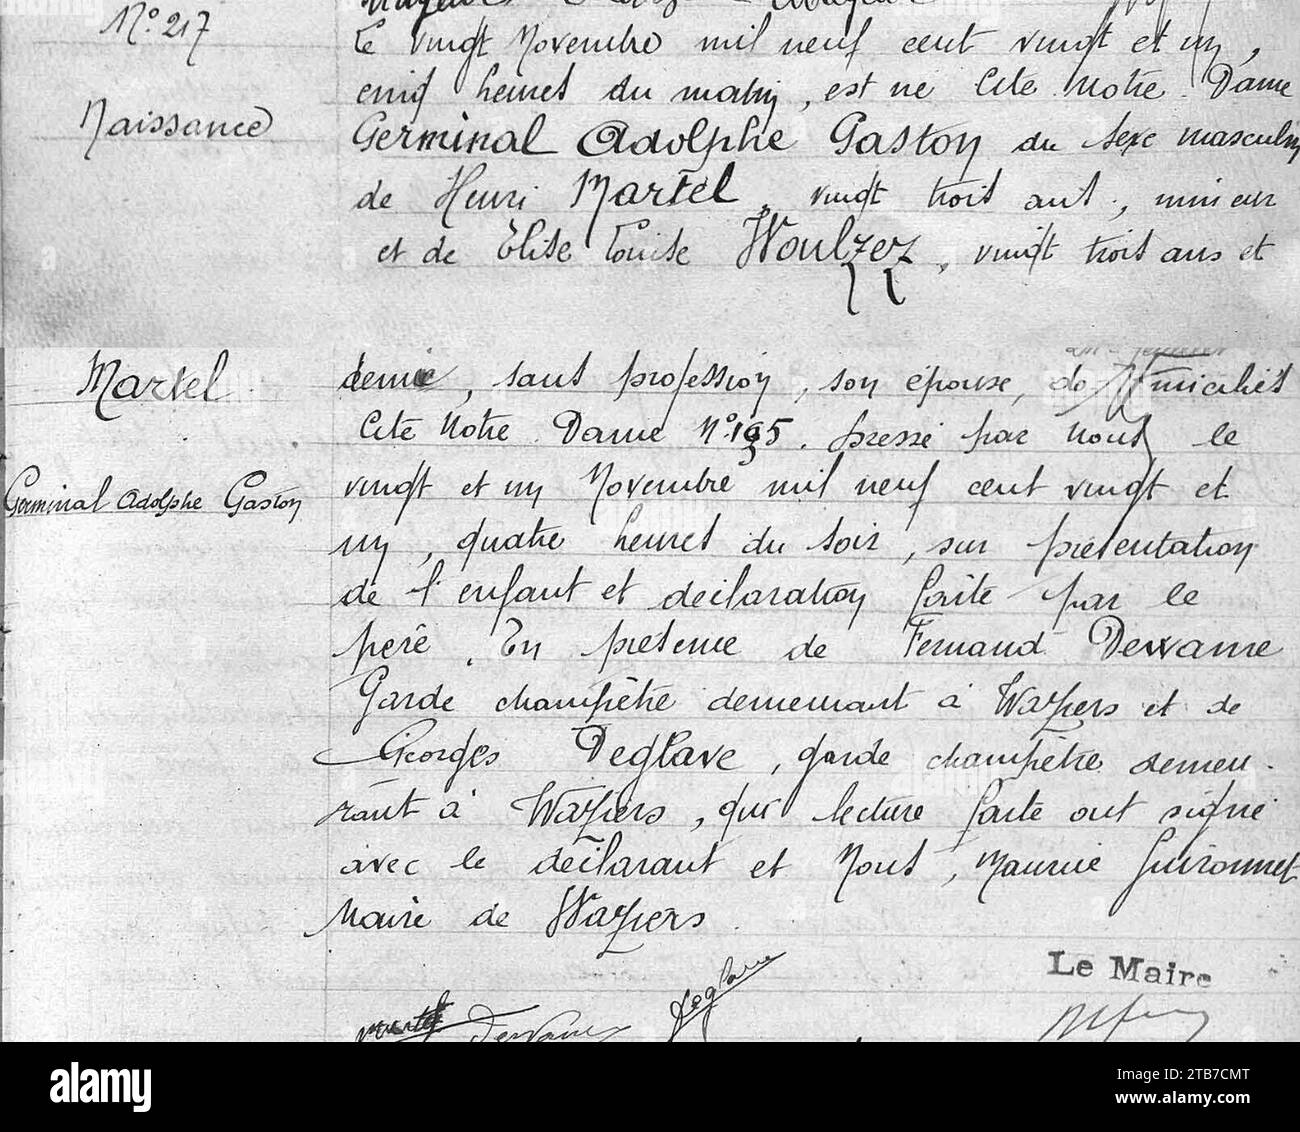 N° 217
Le vingt Novembre mil neuf cent vingt et un,
cinq heures du matin, est né Cité Notre Dame
Naissance
Germinal Adolphe Gaston du sexe masculin
de Henri Martel, vingt trois ans, mineur
et de Elise Louise Woulzez, vingt trois ans et
Martel
demie, sans profession, son épouse, domiciliés
Cité Notre Dame N° 195. Dressé par Nous le
Germinal Adolphe Gaston
vingt et un Novembre mil neuf cent vingt et
un, quatre heures du soir, sur présentation
de l'enfant et déclaration faite par le
père. En présence de Fernand Dewame
Garde champêtre demeurant à Waziers et de
Georges Deglave, garde champêtre demeu-
rant à Waziers, qui lecture faite ont signé
avec le déclarant et Nous, Maurice Guironnet
Maire de Waziers.
Le Maire
Martel Deglave
alamy
Image ID: 2TB7CMT
www.alamy.com